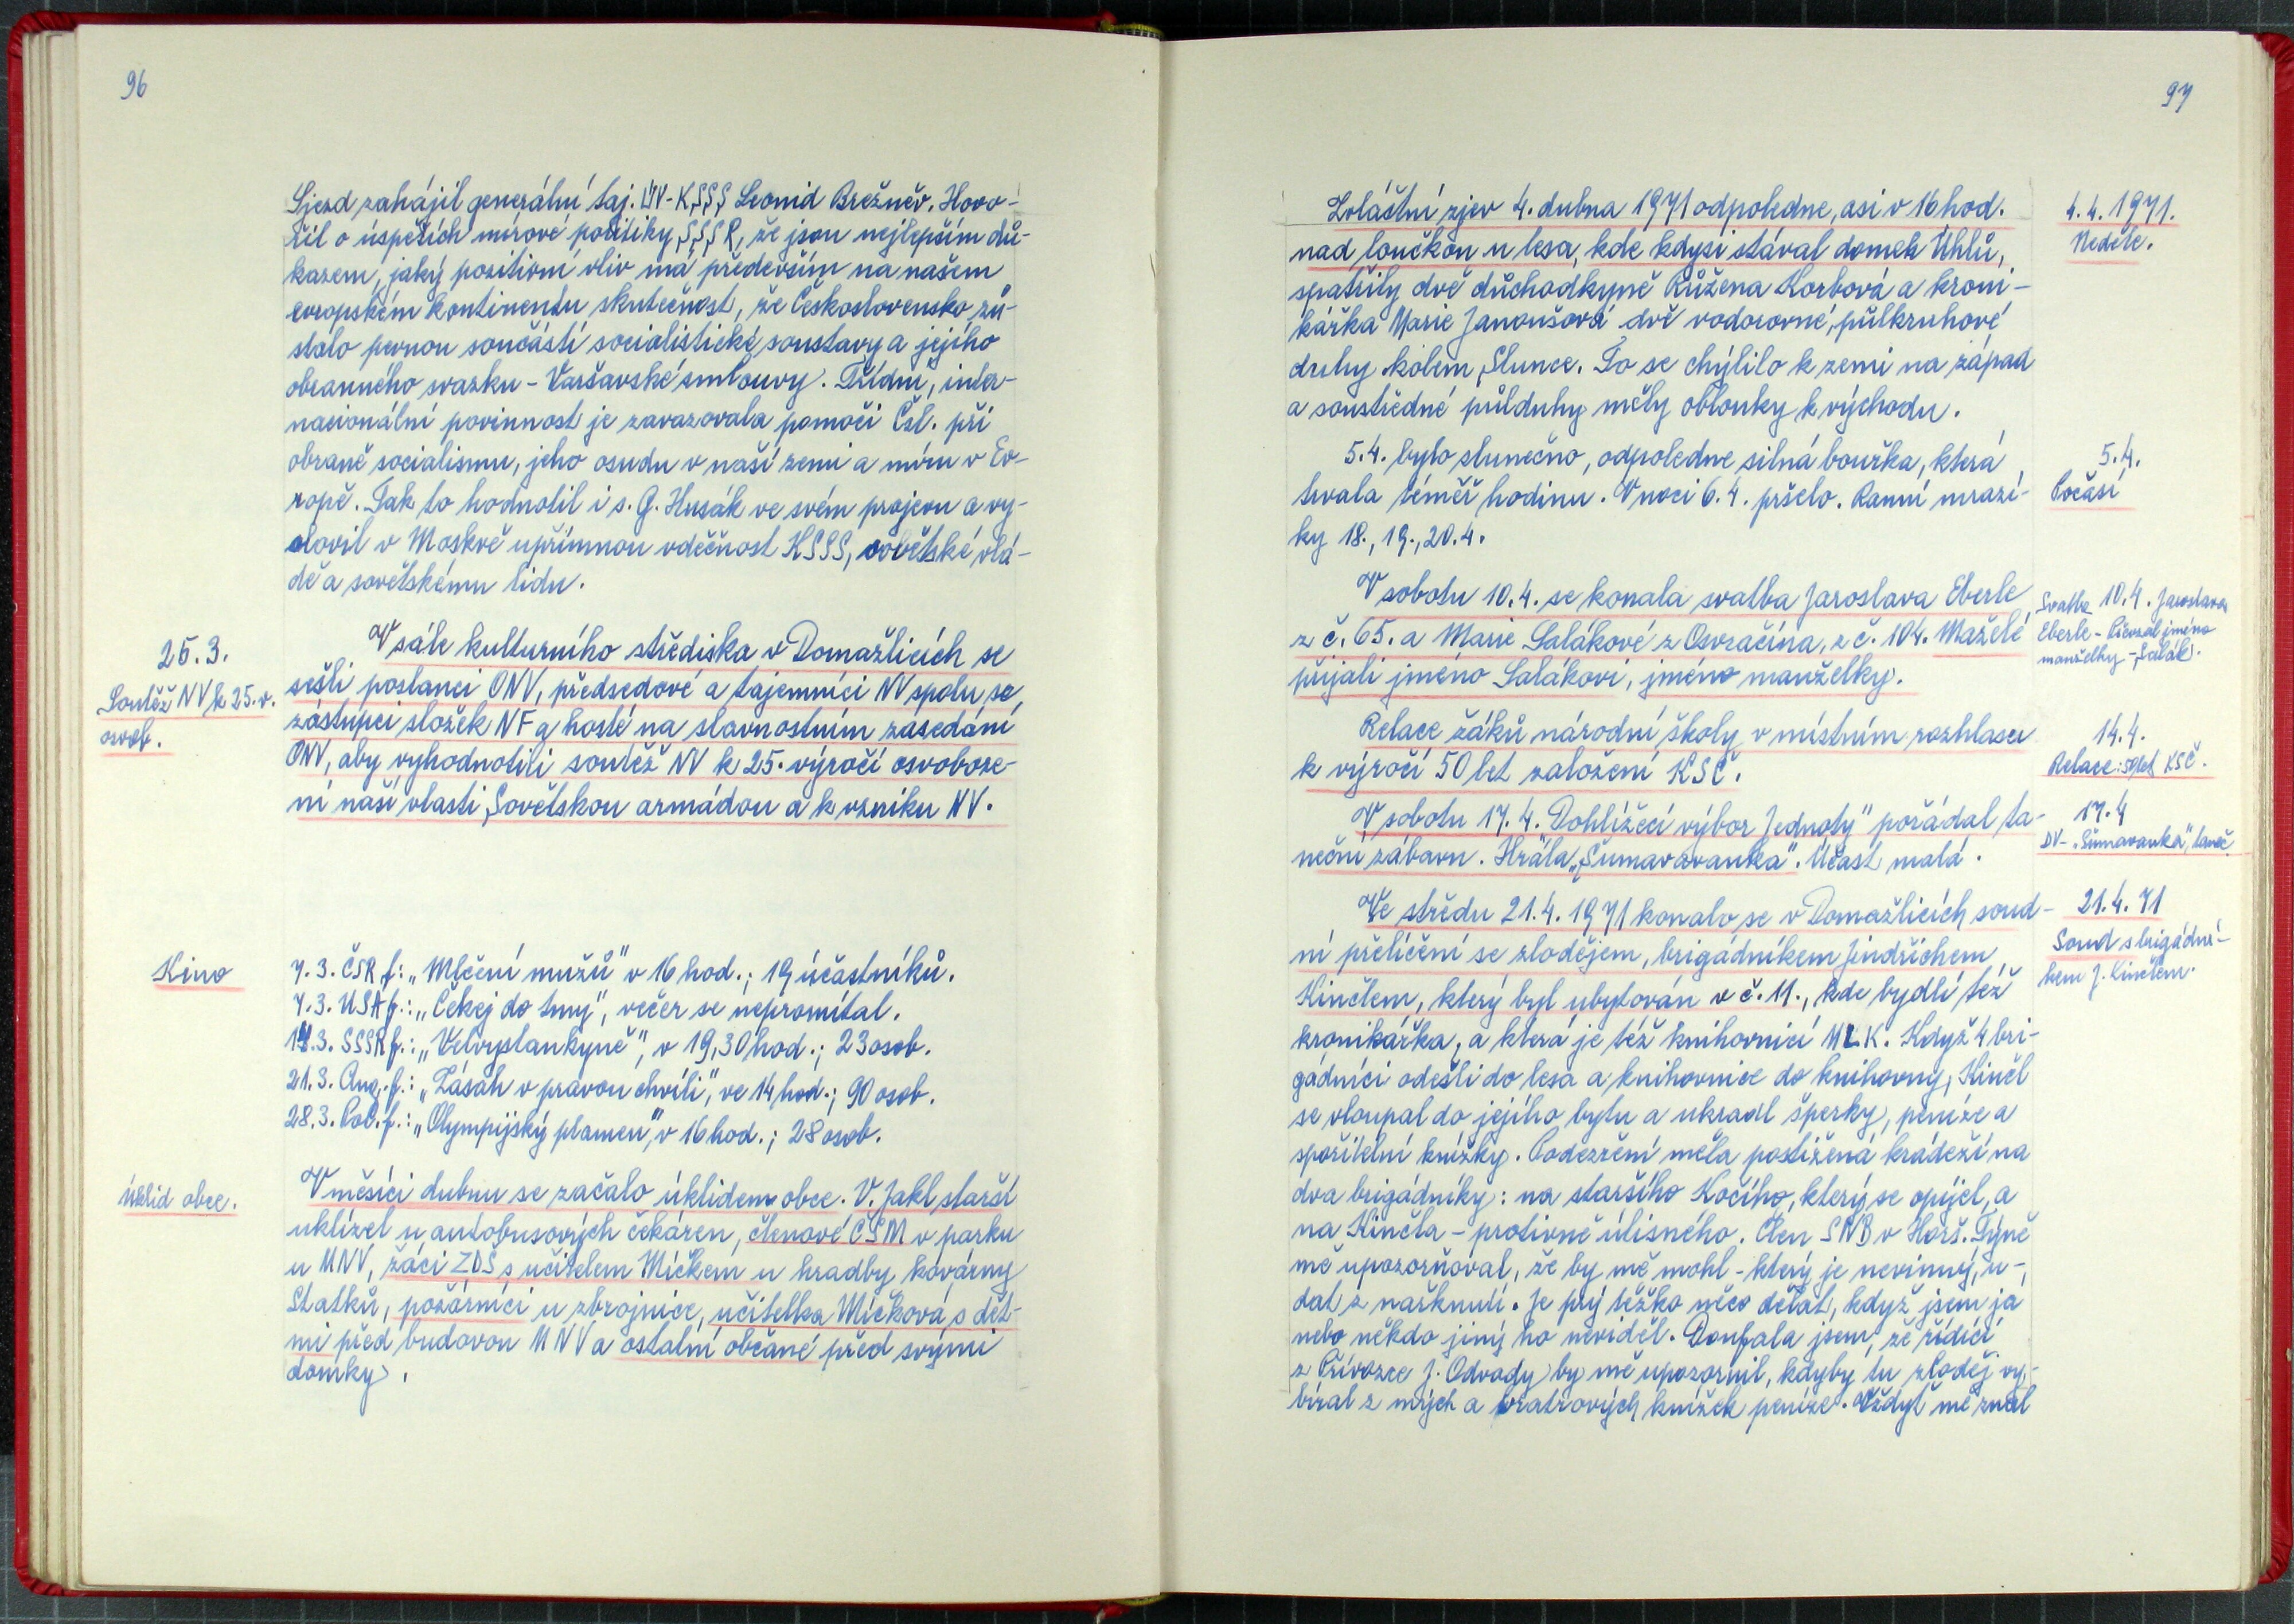 96
Sjezd zahájil generální taj. ÚV-KSSS Leonid Brežněv. Hovo-
řil o úspěších mírové politiky SSSR, že jsou nejlepším dů-
kazem, jaký pozitivní vliv má především na našem
evropském kontinentu skutečnost, že Československo zů-
stalo pevnou součástí socialistické soustavy a jejího
obranného svazku - Varšavské smlouvy. Třídní, inter-
nacionální povinnost je zavazovala pomoci Čsl. při
obraně socialismu, jeho osudu v naší zemi a míru v Ev-
ropě. Tak to hodnotil i s. G. Husák ve svém projevu a vy-
slovil v Moskvě upřímnou vděčnost KSSS, sovětské vlá-
dě a sovětskému lidu.
25.3.
Soutěž NV k 25. v.
osvob.
V sále kulturního střediska v Domažlicích se
sešli poslanci ONV, předsedové a tajemníci NV spolu se
zástupci složek NF a hosté na slavnostním zasedání
ONV, aby vyhodnotili soutěž NV k 25. výročí osvoboze-
ní naší vlasti Sovětskou armádou a k vzniku NV.
Kino
7.3. ČSR f.: „Mlčení mužů" v 16 hod.; 19 účastníků.
7.3. USA f.: „Čekej do tmy", večer se nepromítal.
14.3. SSSR f.: „Velvyslankyně", v 19,30 hod.; 23 osob.
21.3. Ang. f.: „Zásah v pravou chvíli", ve 14 hod.; 90 osob.
28.3. Pol. f.: „Olympijský plamen", v 16 hod.; 28 osob.
Úklid obce.
V měsíci dubnu se začalo úklidem obce. V. Jakl starší
uklízel u autobusových čekáren, členové ČSM v parku
u MNV, žáci ZDŠ s učitelem Míčkem u hradby kovárny
Statků, požárníci u zbrojnice, učitelka Míčková s dět-
mi před budovou MNV a ostatní občané před svými
domky.
97
Zvláštní zjev 4. dubna 1971 odpoledne, asi v 16 hod.
nad loučkou u lesa, kde kdysi stával domek Uhlů,
spatřily dvě důchodkyně Růžena Korbová a kroni-
kářka Marie Janoušová dvě vodorovné, půlkruhové
duhy kolem Slunce. To se chýlilo k zemi na západ
a soustředné půlduhy měly oblouky k východu.
4.4.1971.
Neděle.
5.4. bylo slunečno, odpoledne silná bouřka, která
trvala téměř hodinu. V noci 6.4. pršelo. Ranní mrazí-
ky 18., 19., 20.4.
5.4.
Počasí
V sobotu 10.4. se konala svatba Jaroslava Eberle
z č. 65. a Marie Salákové z Osvračína, z č. 104. Manželé
přijali jméno Salákovi, jméno manželky.
Svatba 10.4. Jaroslava
Eberle - Převzal jméno
manželky - „Salák".
Relace žáků národní školy v místním rozhlasu
k výročí 50 let založení KSČ.
14.4.
Relace: 50 let KSČ.
V sobotu 17.4. Dohlížecí výbor „Jednoty" pořádal ta-
neční zábavu. Hrála „Šumavavanka". Účast malá.
17.4
DV- „Šumavanka", taneč.
Ve středu 21.4.1971 konalo se v Domažlicích soud-
ní přelíčení se zlodějem, brigádníkem Jindřichem
Kinčlem, který byl ubytován v č. 11., kde bydlí též
kronikářka, a která je též knihovnicí MLK. Když 4 bri-
gádníci odešli do lesa a knihovnice do knihovny, Kinčl
se vloupal do jejího bytu a ukradl šperky, peníze a
spořitelní knížky. Podezření měla postižená krádeží na
dva brigádníky: na staršího Kočího, který se opíjel, a
na Kinčla - protivně úlisného. Člen SNB v Horš. Týně
mě upozorňoval, že by mě mohl - který je nevinný, u-
dat z nařknutí. Je prý těžko něco dělat, když jsem já
nebo někdo jiný ho neviděl. Doufala jsem, že řídící
z Přívozce J. Odvody by mě upozornil, kdyby tu zloděj vy-
bíral z mých a bratrových knížek peníze. Vždyť mě znal
21.4.71
Soud s brigádní-
kem J. Kinčlem.